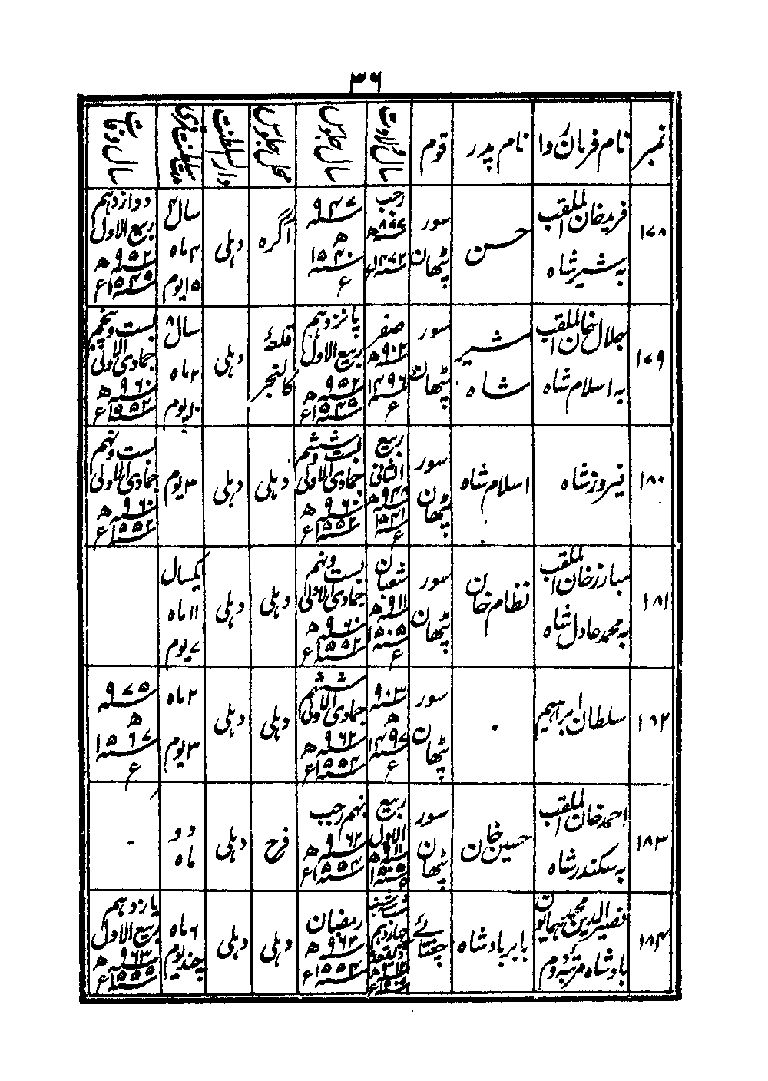 ۳۶
نمبر نام فرمان روا نام پدر قوم سال ولادت سال جلوس محل جلوس دار السلطنت مدت سلطنت قمری سال وفات
۱۷۸ فرید خان الملقب بہ شیر شاہ حسن سور پٹھان رجب ۸۷۷ھ ۱۴۷۲ع ۹۴۷ھ ۱۵۴۰ع آگرہ دہلی ۴سال ۴ماہ ۱۵یوم دوازدہم ربیع الاول ۹۵۲ھ ۱۵۴۵ع
۱۷۹ جلال خان الملقب بہ اسلام شاہ شیر شاہ سور پٹھان صفر ۹۰۲ھ ۱۴۹۶ع پانزدہم ربیع الاول ۹۵۲ھ ۱۵۴۵ع قلعۂ کالنجر دہلی ۸سال ۲ماہ ۱۰یوم بست و پنجم جمادی الاولی ۹۶۰ھ ۱۵۵۲ع
۱۸۰ فیروز شاہ اسلام شاہ سور پٹھان ربیع الثانی ۹۴۸ھ ۱۵۴۱ع بست و ششم جمادی الاولی ۹۶۰ھ ۱۵۵۲ع دہلی دہلی ۳یوم بست و نہم جمادی الاولی ۹۶۰ھ ۱۵۵۲ع
۱۸۱ مبارز خان الملقب بہ محمد عادل شاہ نظام خان سور پٹھان شعبان ۹۱۱ھ ۱۵۰۵ع بست و نہم جمادی الاولی ۹۶۰ھ ۱۵۵۲ع دہلی دہلی یکسال ۱۱ماہ ۷یوم
۱۶۲ سلطان ابراہیم ۰ سور پٹھان ۹۰۳ھ ۱۴۹۷ع ششم جمادی الاولی ۹۶۲ھ ۱۵۵۴ع دہلی دہلی ۲ماہ ۳یوم ۹۷۵ھ ۱۵۶۷ع
۱۸۳ احمد خان الملقب بہ سکندر شاہ حسین خان سور پٹھان ربیع الاول ۹۱۱ھ ۱۵۰۵ع نہم رجب ۹۶۲ھ ۱۵۵۴ع فرح دہلی دو ماہ -
۱۸۴ نصیر الدین محمد ہمایون بادشاہ مرتبہ دوم بابر بادشاہ چغتائے رمضان ۹۶۲ھ ۱۵۵۴ع دہلی دہلی ۶ماہ چند یوم یازدہم ربیع الاول ۹۶۳ھ ۱۵۵۵ع